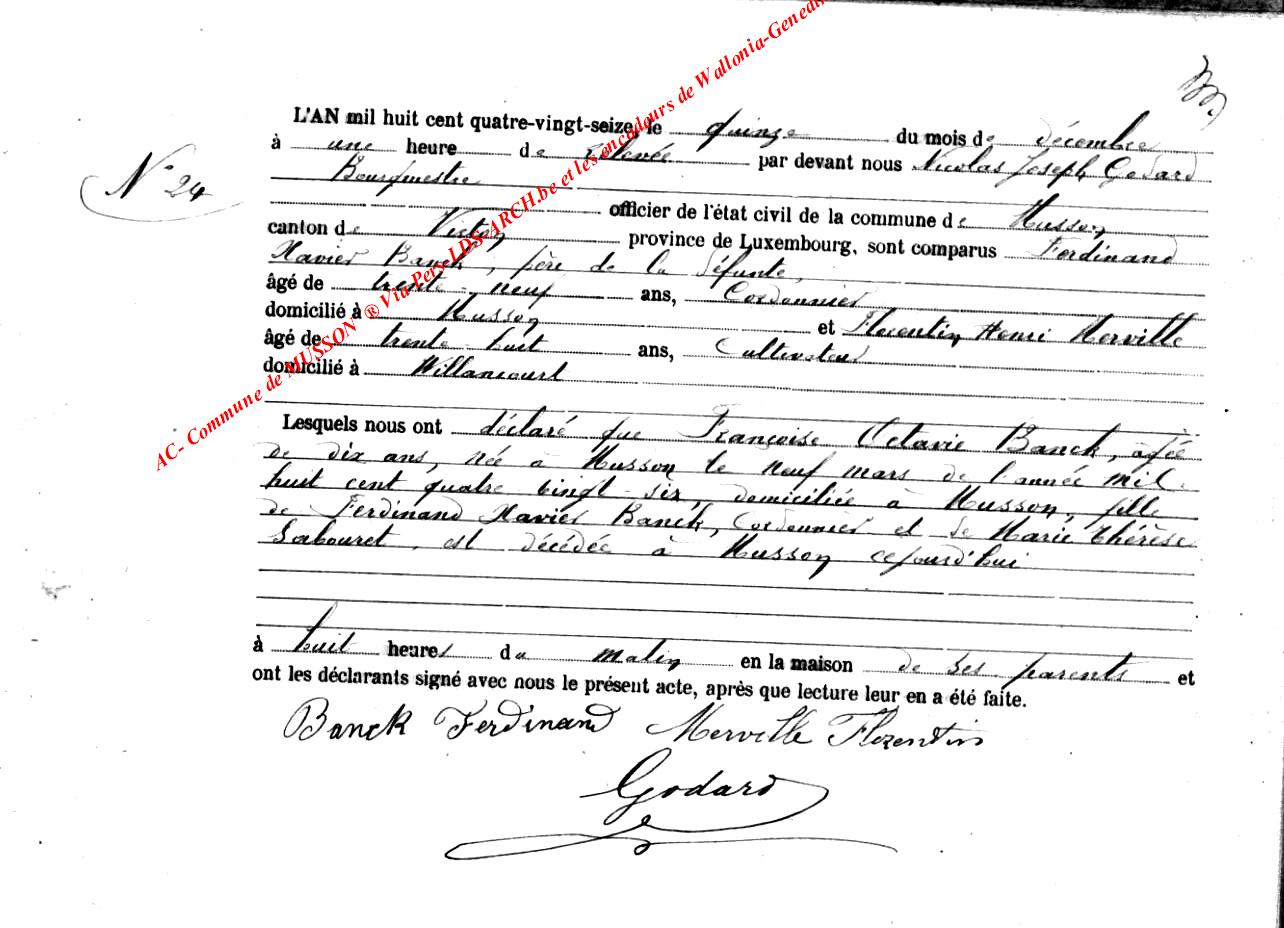 AC- Commune de MUSSON ® Via Pers-LDS-ARCH.be et les encodeurs de Wallonia-Genedi
L'AN mil huit cent quatre-vingt-seize, le quinze du mois de décembre
à une heure de relevée par devant nous Nicolas Joseph Godard
N° 24
Bourgmestre
officier de l'état civil de la commune de Musson
canton de Virton province de Luxembourg, sont comparus Ferdinand
Xavier Banck, père de la défunte,
âgé de trente-neuf ans, Cordonnier
domicilié à Musson et Florentin Henri Merville
âgé de trente huit ans, Cultivateur
domicilié à Willancourt
Lesquels nous ont déclaré que Françoise Octavie Banck, âgée
de dix ans, née à Musson le neuf mars de l'année mil
huit cent quatre vingt-six, domiciliée à Musson, fille
de Ferdinand Xavier Banck, Cordonnier et de Marie Thérèse
est décédée à Musson cejourd'hui
à huit heures du matin en la maison de ses parents et
ont les déclarants signé avec nous le présent acte, après que lecture leur en a été faite.
Banck Ferdinand Merville Florentin
Godard